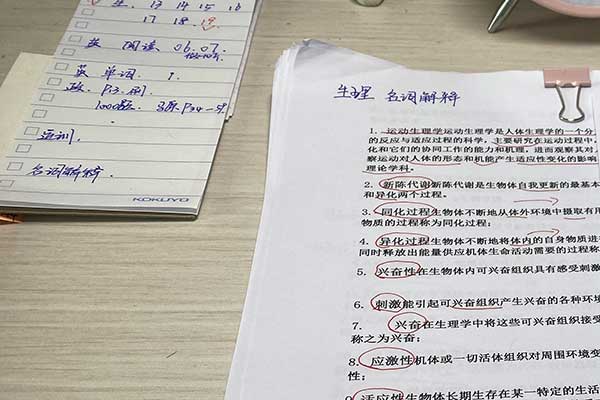 生. 13 14 15 16
17 18 19
英 阅读 06.07.
英 单词. 1.
政. P13.
1000题.
KOKUYO
名词解释.
生理 名词解释
1. 运动生理学运动生理学是人体生理学的一个分
的反应与适应过程的科学，主要研究在运动过程中，
化和它们的协同工作的能力和机理，进而观察其对
察运动对人体的形态和机能产生适应性变化的影响
理论学科。
2. 新陈代谢新陈代谢是生物体自我更新的最基本
和异化两个过程。
3. 同化过程生物体不断地从体外环境中摄取有用
物质的过程称为同化过程；
4. 异化过程生物体不断地将体内的自身物质进
同时释放出能量供应机体生命活动需要的过程称
5. 兴奋性在生物体内可兴奋组织具有感受刺激
6. 刺激能引起可兴奋组织产生兴奋的各种环境
7. 兴奋在生理学中将这些可兴奋组织接受
称之为兴奋；
8. 应激性机体或一切活体组织对周围环境变
性；
9. 适应性生物体长期生存在某一特定的生活